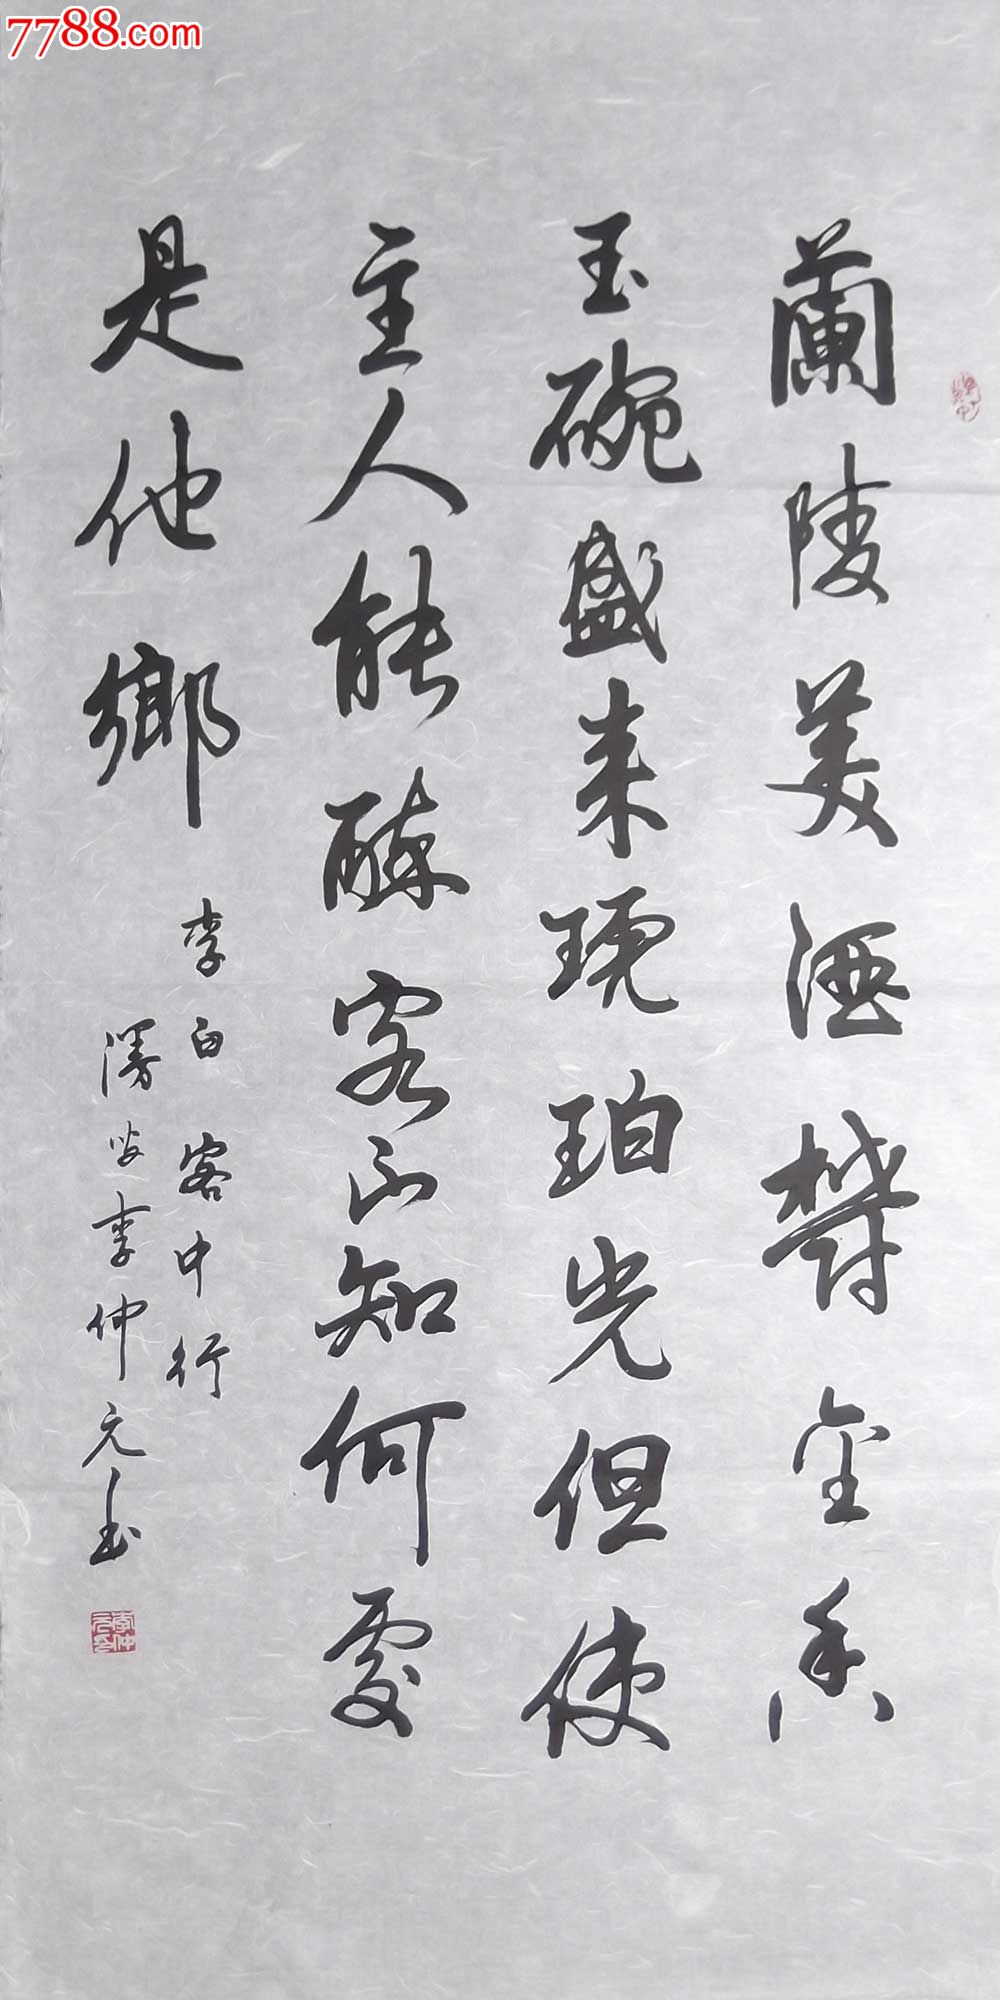 7788.com
蘭陵美酒欝金香
玉碗盛来琥珀光但使
主人能醉客不知何處
是他鄉
李白客中行
漫翁李仲元书
李仲元印